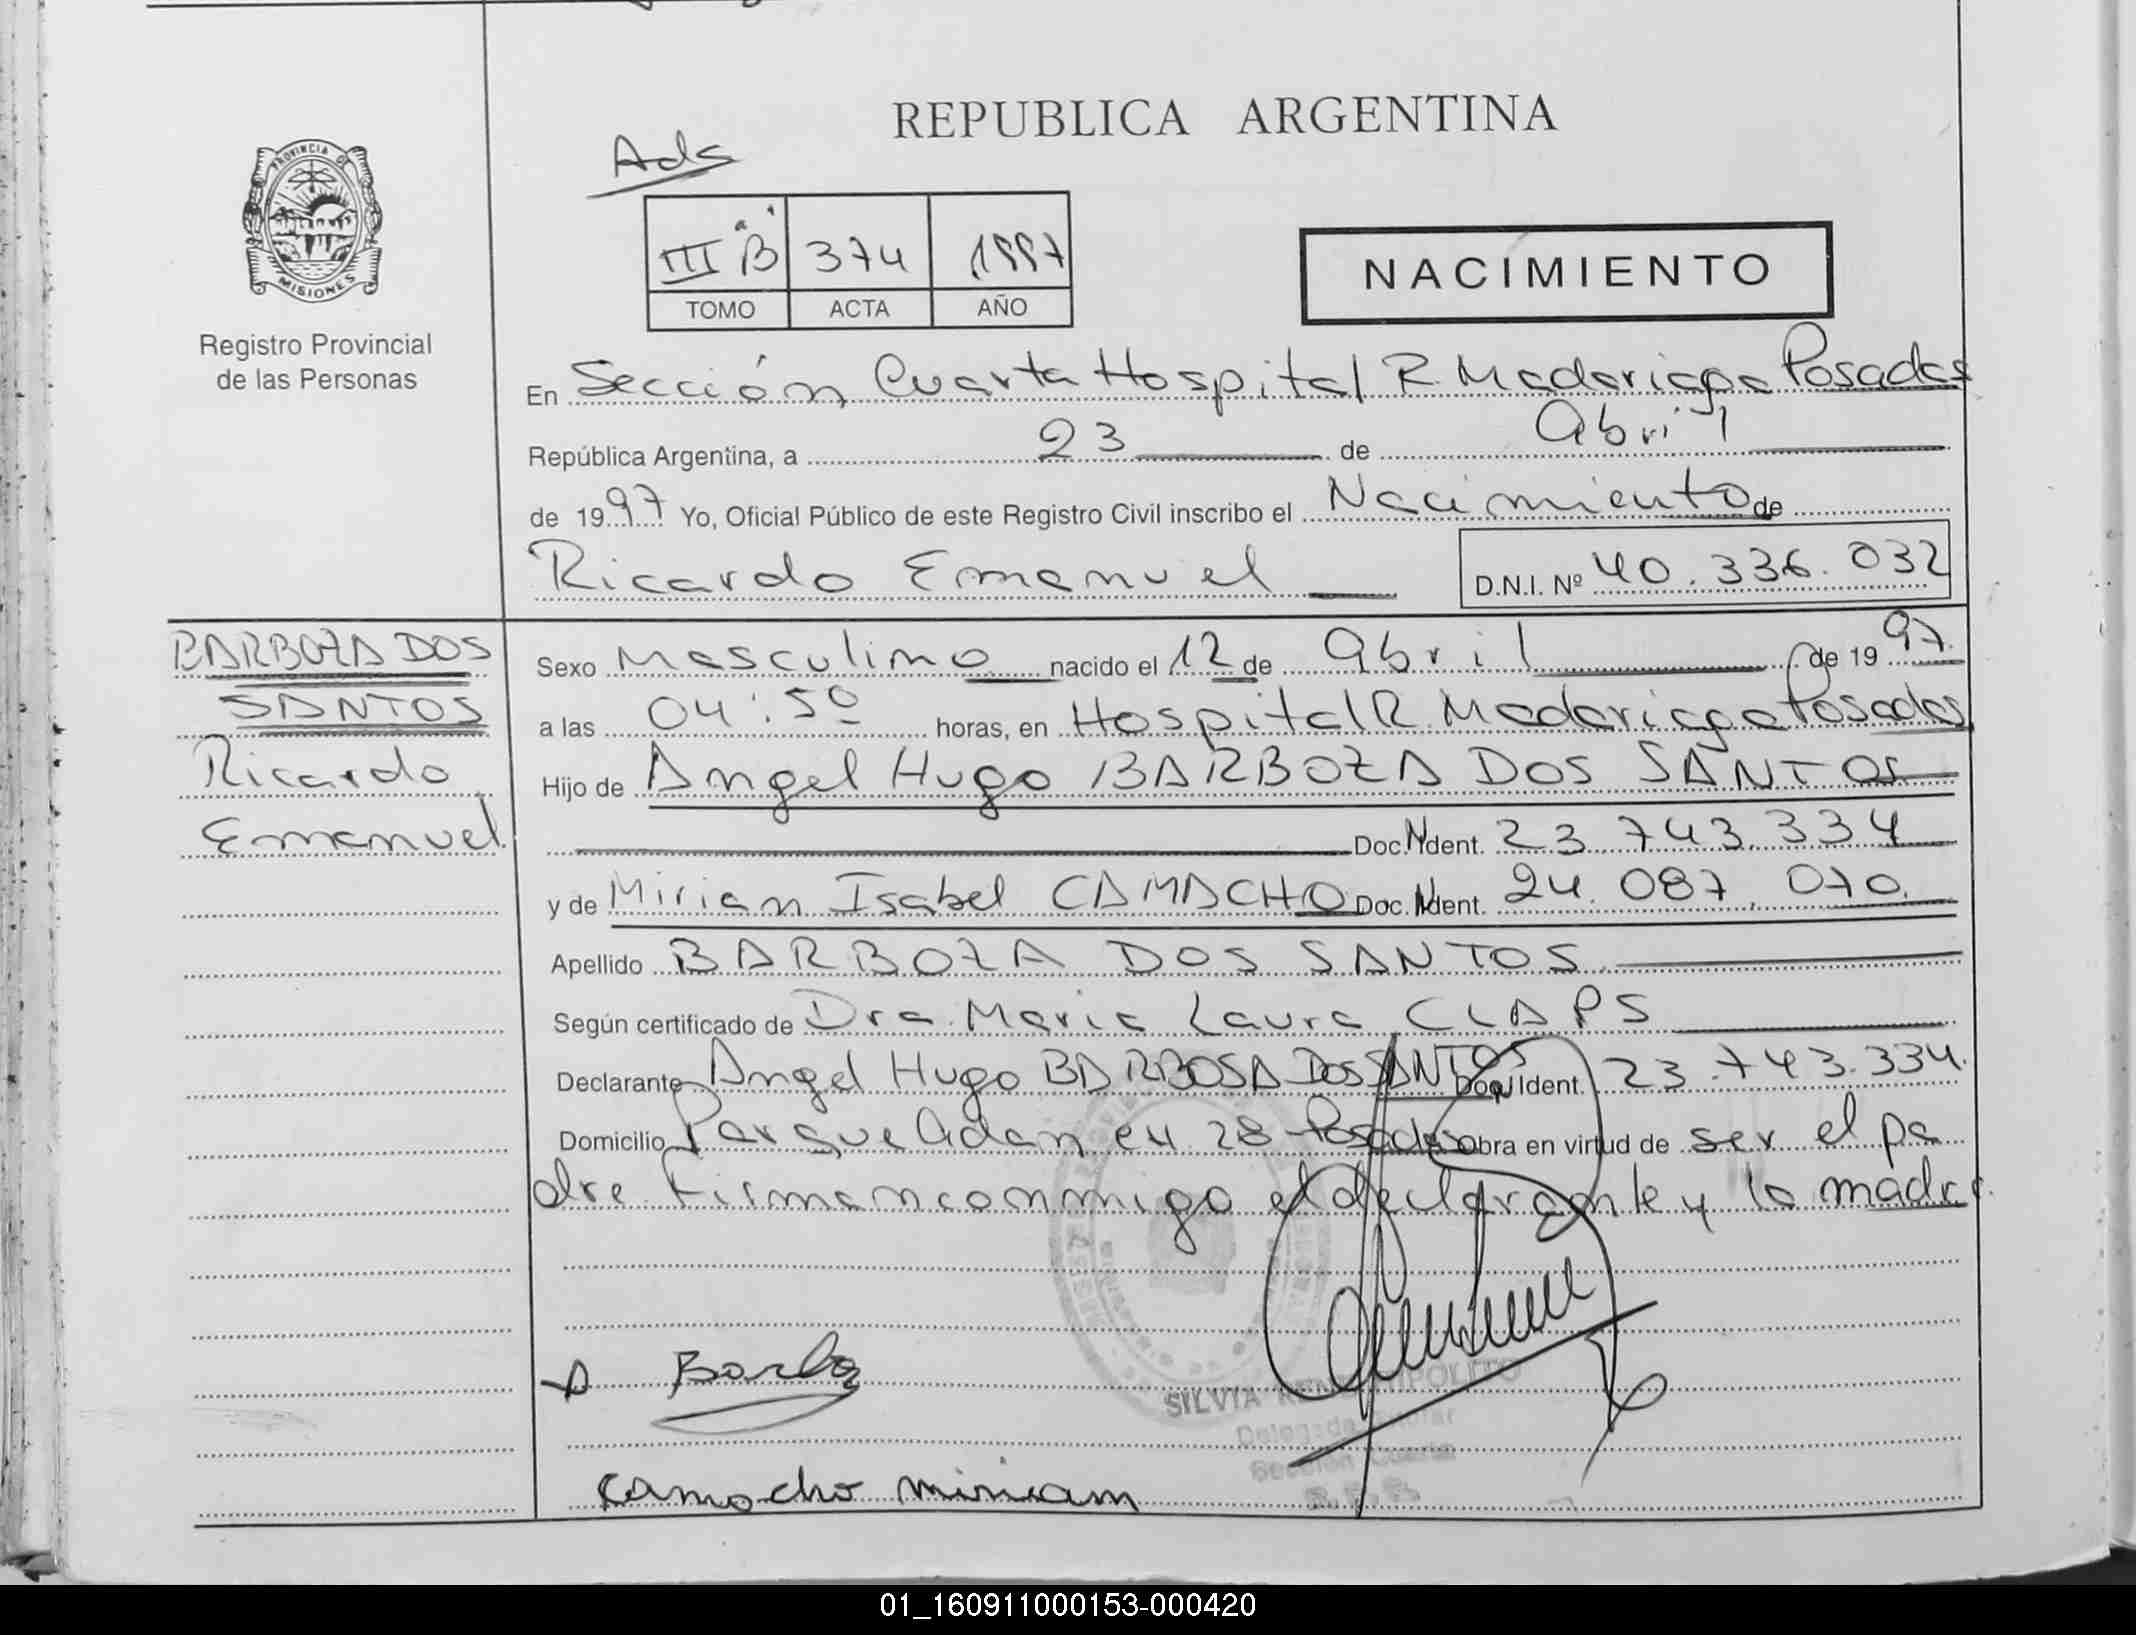 REPUBLICA ARGENTINA
Ads
PROVINCIA DE
MISIONES
III "B" 374 1997
TOMO ACTA AÑO
NACIMIENTO
Registro Provincial
de las Personas
En Sección Cuarta Hospital R. Madariaga Posadas
República Argentina, a 23 de Abril
de 1997 Yo, Oficial Público de este Registro Civil inscribo el Nacimiento de
Ricardo Emanuel D.N.I. Nº 40.336.032
BARBOZA DOS
SANTOS
Ricardo
Emanuel
Sexo Masculino nacido el 12 de Abril de 1997.
a las 04:50 horas, en Hospital R. Madariaga Posadas
Hijo de Angel Hugo BARBOZA DOS SANTOS
Doc. Ident. 23.743.334
y de Miriam Isabel CAMACHO Doc. Ident. 24.087.070.
Apellido BARBOZA DOS SANTOS
Según certificado de Dra. Maria Laura CLAPS
Declarante Angel Hugo BARBOSA DOS SANTOS Doc. Ident. 23.743.334.
Domicilio Parque Adam en 28 Posadas Obra en virtud de ser el pa
dre. Firman conmigo el declarante y la madre.
Barboza
SILVIA
Delegada Titular
Sección Cuarta
Camacho Miriam
01_160911000153-000420